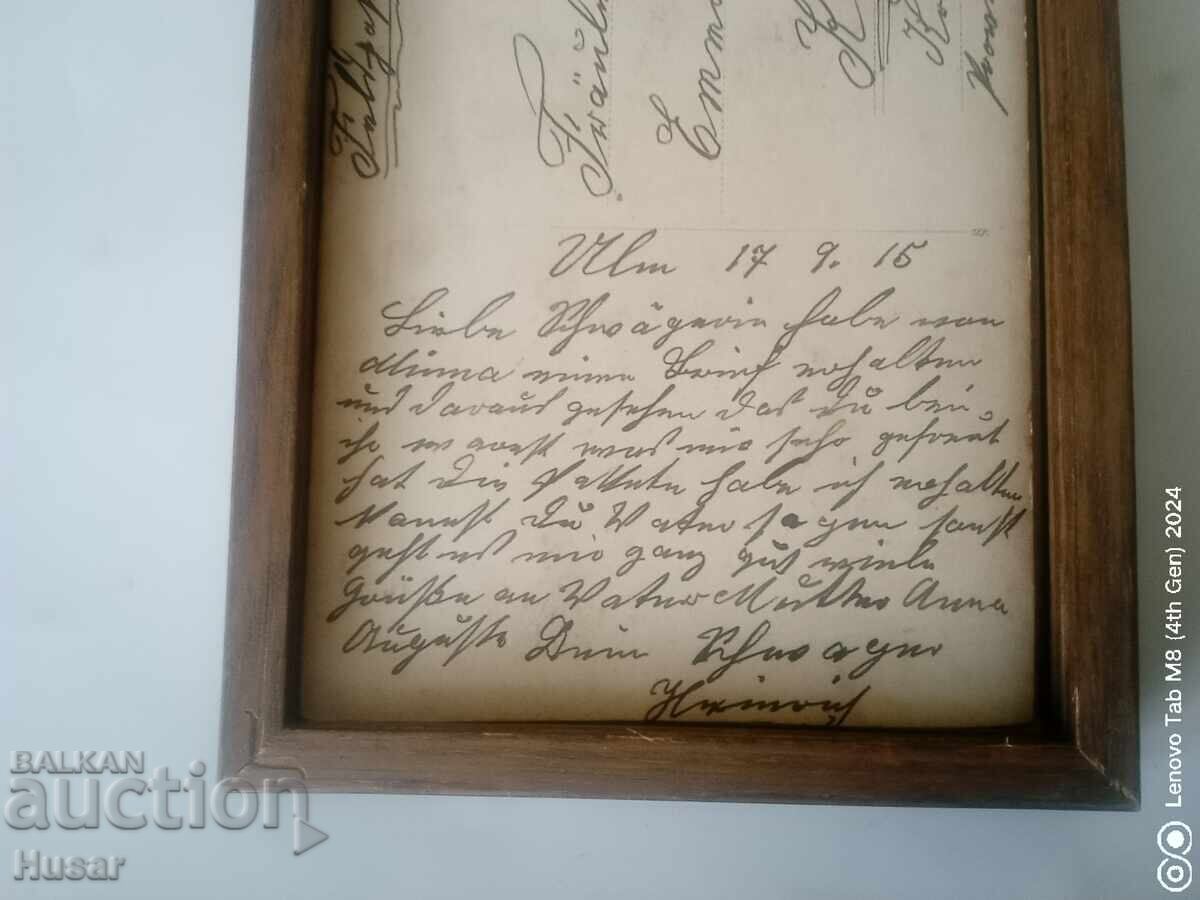 Feldpos
Fräule
Emma
K
Ulm 17 9. 15
Liebe Schwägerin habe von
Minna einen Brief erhalten
und daraus gesehen das du bei
ihr warst was mir sehr gefreut
hat Die Pakete habe ich erhalten
kannst du Vater sagen sonst
geht es mir ganz gut viele
Grüße an Vater Mutter Anna
Auguste Dein Schwager
Heinrich
BALKAN
auction
Husar
Lenovo Tab M8 (4th Gen) 2024